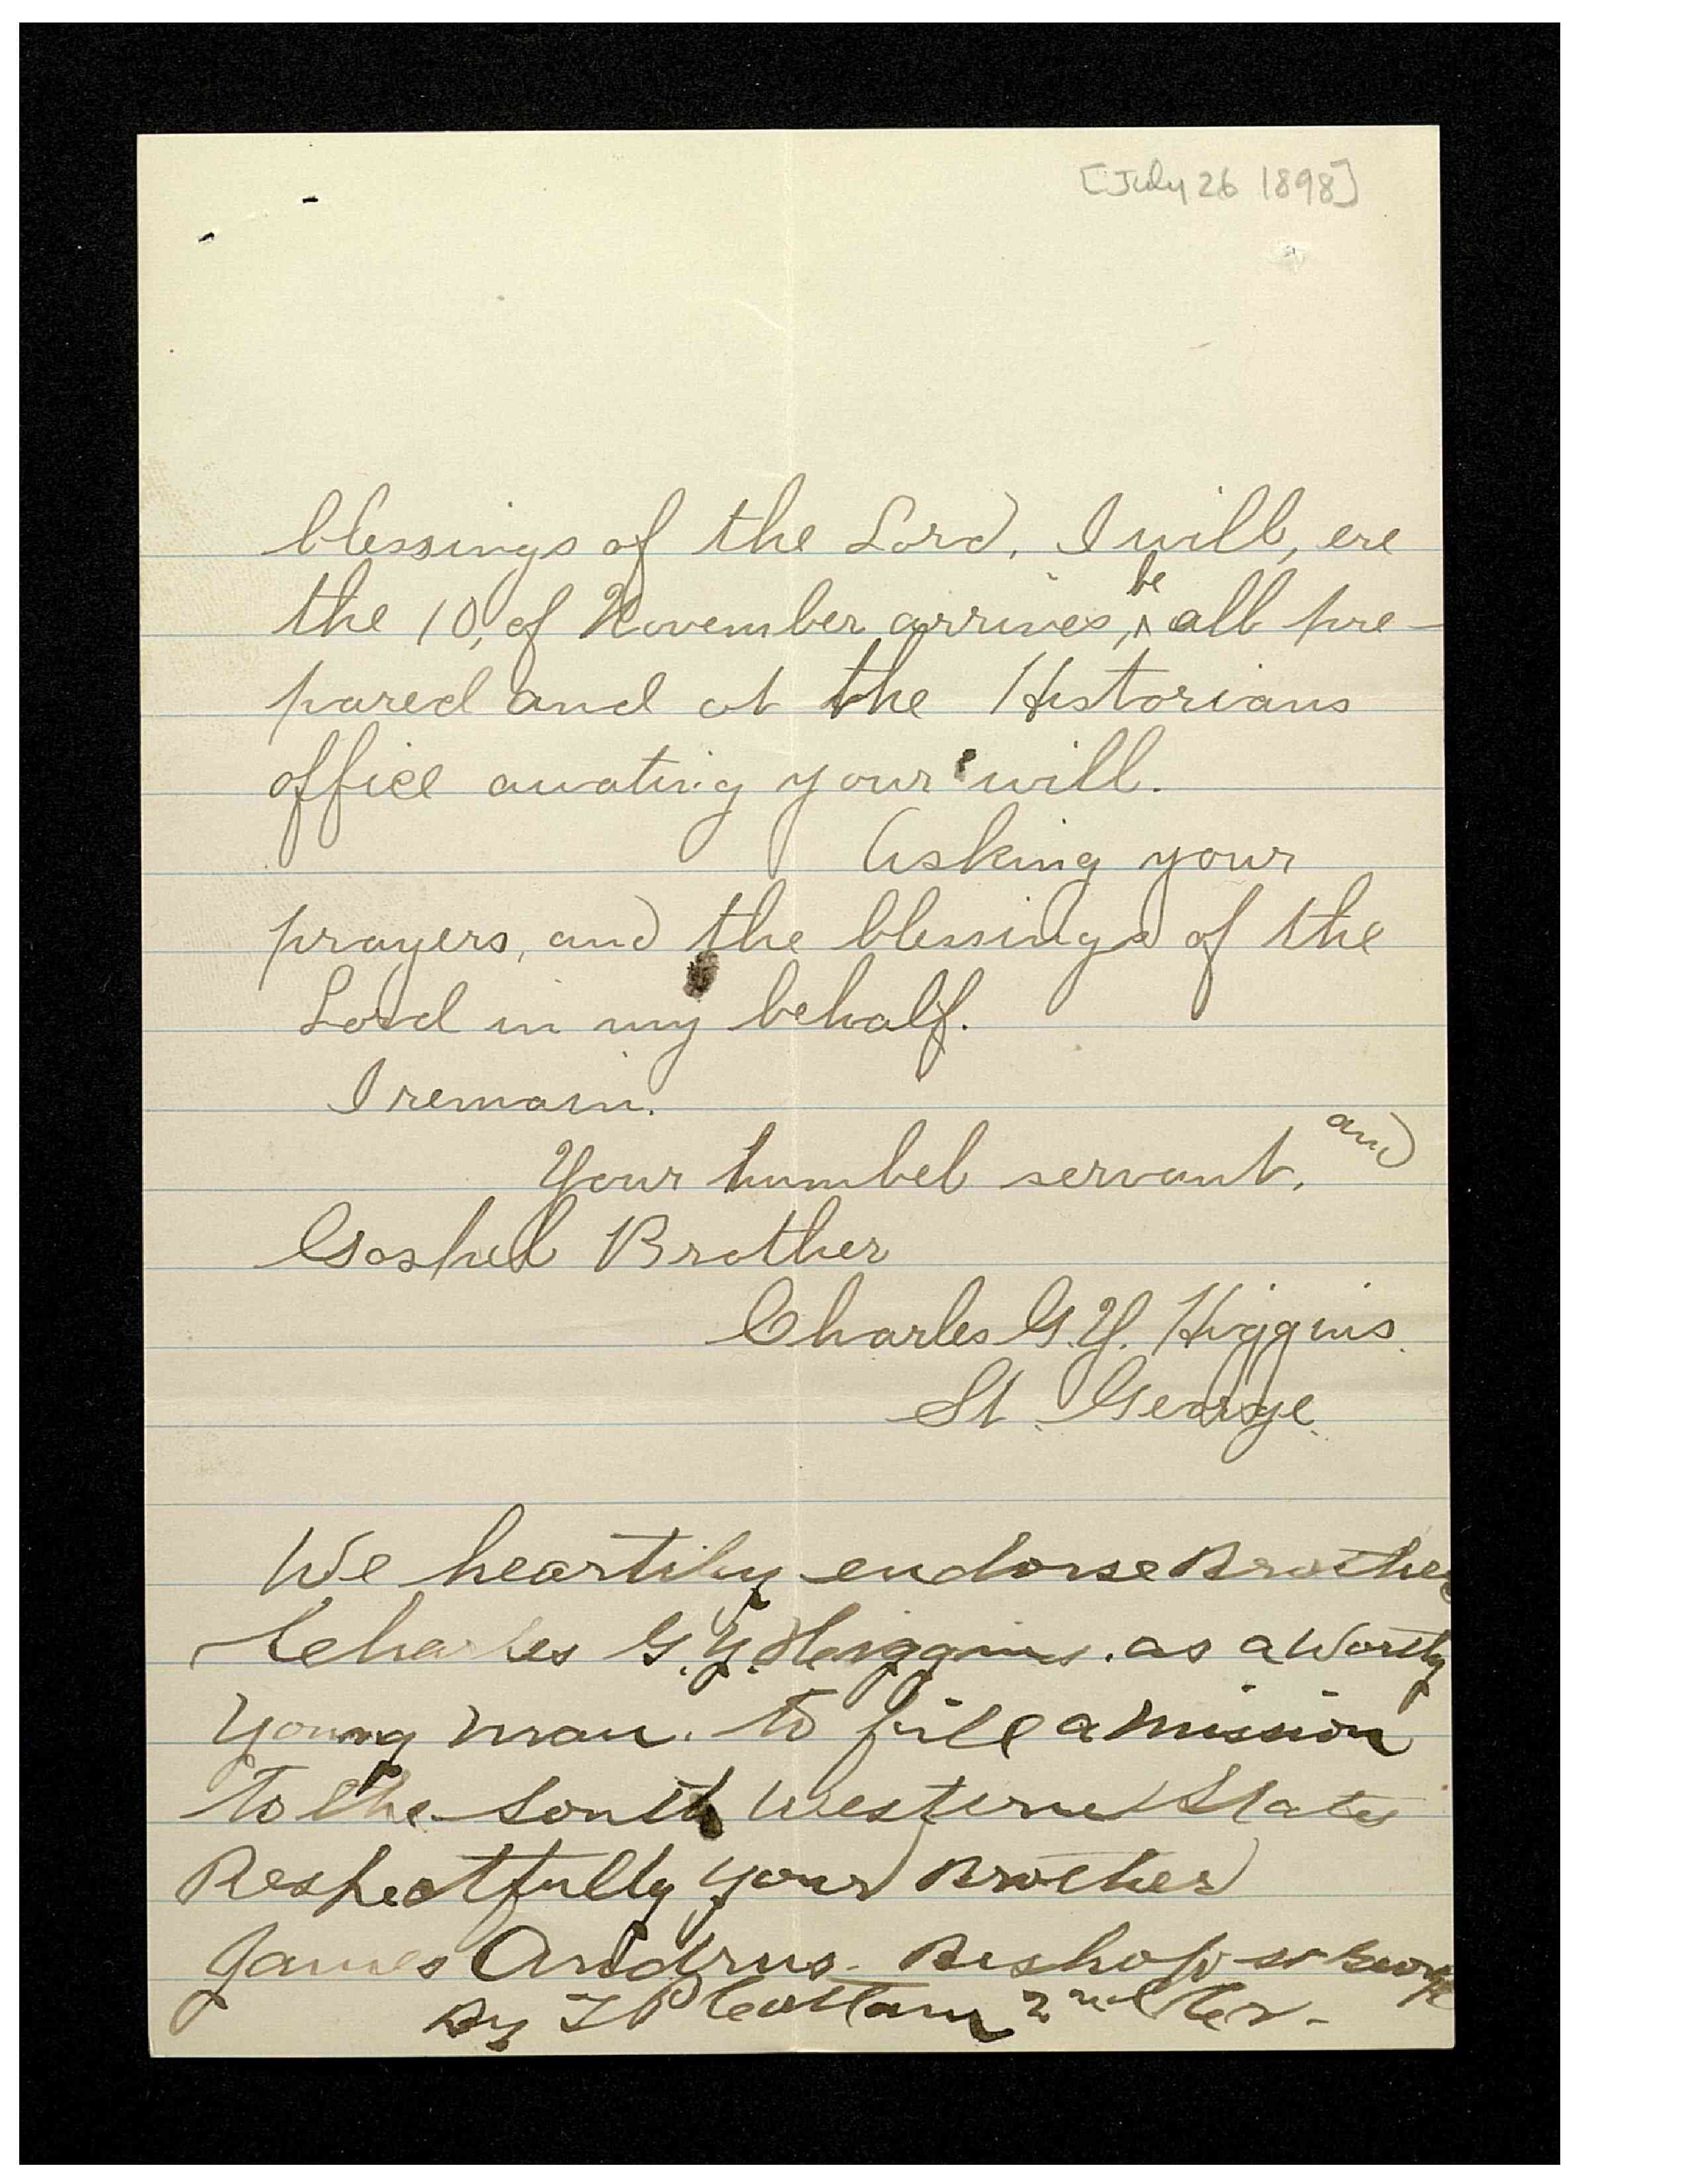 [July 26 1898]
blessings of the Lord, I will, ere
be
the 10, of November arrives, ^ all pre-
pared and at the Historians
office awating your will.
Asking your
prayers, and the blessings of the
Lord in my behalf.
I remain.
and
Your humbel servant.
Gospel Brother
Charles G.Y. Higgins.
St. George.
We heartily endorse Brother
Charles G.Y. Higgins. as a Worthy
Young man. to fill a mission
To the South Western States
Respectfully your Brother
James Andrus. Bishop St George
By T P Cottam 2nd Cr.